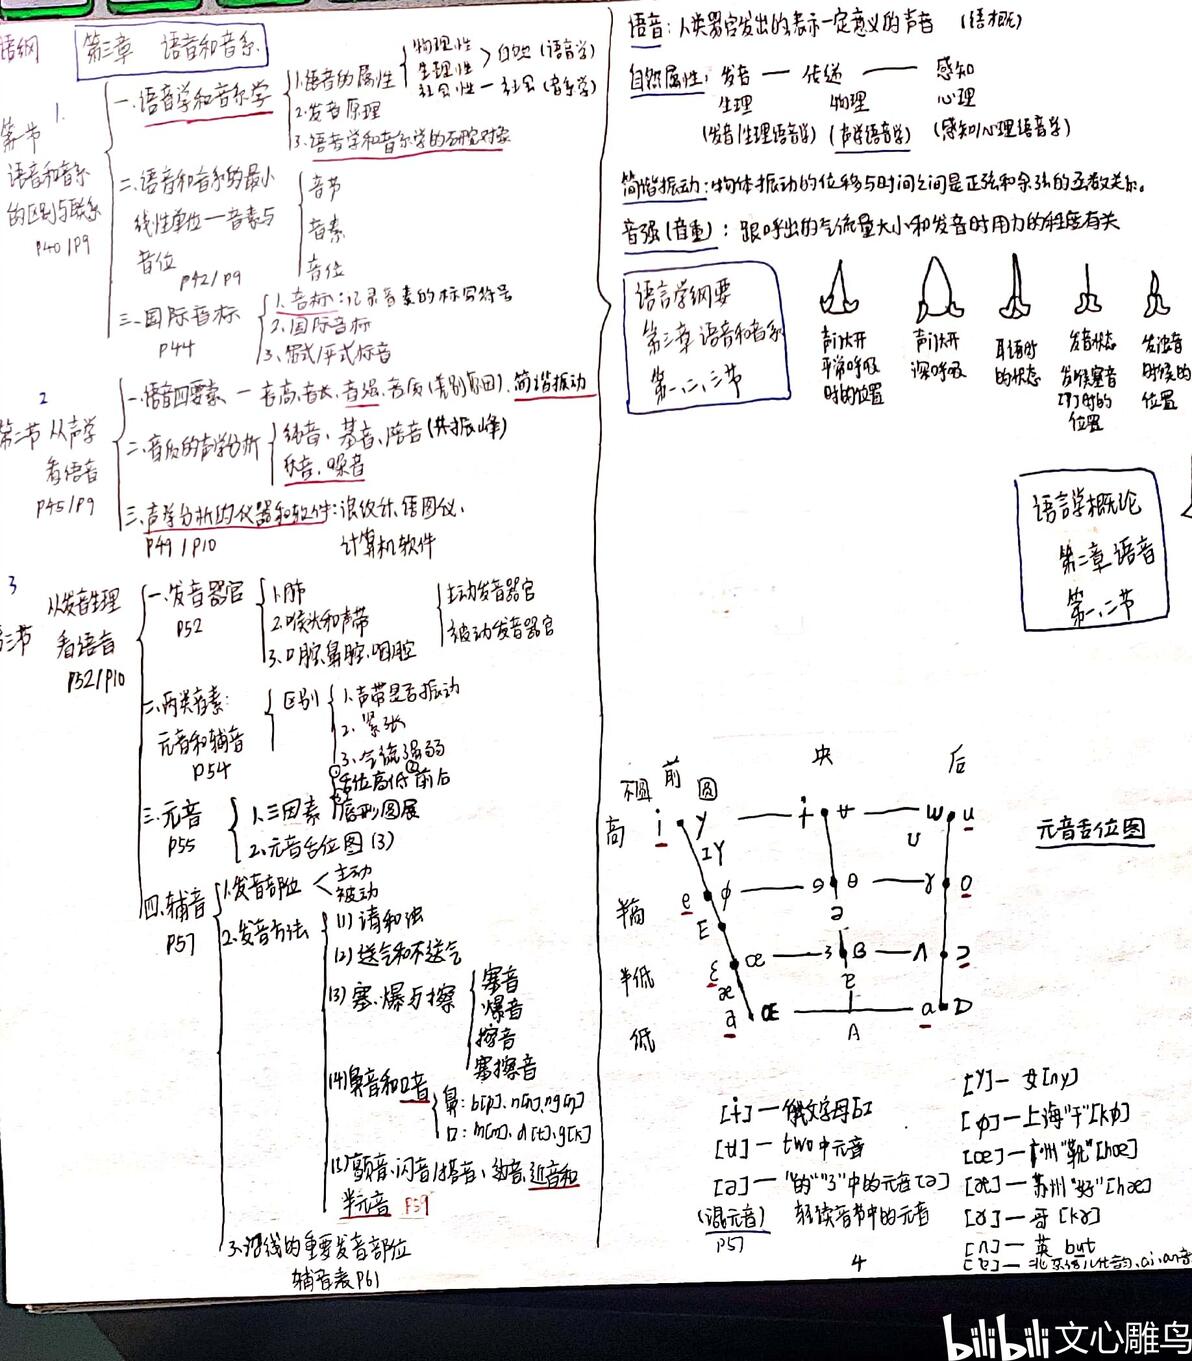 语纲
第三章 语音和音系
第一节
1.
语音和音系
的区别与联系
P40/P9
一、语音学和音系学
1.语音的属性
物理性
生理性
社会性
自然(语音学)
社会(音系学)
2.发音原理
3.语音学和音系学的研究对象
二、语音和音系的最小
线性单位—音素与
音位
P42/P9
音节
音素
音位
三、国际音标
P44
1.音标:记录音素的标写符号
2.国际音标
3.宽式/严式标音
2
第二节 从声学
看语音
P45/P9
一、语音四要素 — 音高、音长、音强、音质(差别原因)、简谐振动
二、音质的声学分析
纯音、基音、陪音(共振峰)
乐音、噪音
三、声学分析的仪器和软件:浪纹计、语图仪、
P49/P10
计算机软件
3
第三节
从发音生理
看语音
P52/P10
一、发音器官
P52
1.肺
2.喉头和声带
3.口腔、鼻腔、咽腔
主动发音器官
被动发音器官
二、两类音素:
元音和辅音
P54
区别
1.声带是否振动
2.紧张
3.气流强弱
三、元音
P55
1.三因素
①舌位高低②前后
③唇形圆展
2.元音舌位图(3)
四、辅音
P57
1.发音部位
主动
被动
2.发音方法
(1)清和浊
(2)送气和不送气
(3)塞、爆与擦
塞音
爆音
擦音
塞擦音
(4)鼻音和口音
鼻:b[p]、n[n]、ng[ŋ]
口:m[m]、d[t]、g[k]
(5)颤音、闪音/搭音、边音、近音和
半元音 P59
3.沿线的重要发音部位
辅音表P61
语音:人类器官发出的表示一定意义的声音 (语概)
自然属性:发音 — 传递 — 感知
生理 物理 心理
(发音/生理语音学) (声学语音学) (感知/心理语音学)
简谐振动:物体振动的位移与时间之间是正弦和余弦的函数关系。
音强(音重):跟呼出的气流量大小和发音时用力的程度有关
语言学纲要
第三章 语音和音系
第一、二、三节
声门大开
平常呼吸
时的位置
声门大开
深呼吸
耳语时
的状态
发音状态
发喉塞音
[ʔ]时的
位置
发浊音
时候的
位置
语言学概论
第二章 语音
第一、二节
前 央 后
不圆 圆
高 i y ɨ ʉ ɯ u
I Y ʊ
半高 e ø ɘ ɵ ɤ o
E ə
半低 ɛ œ ɜ ɞ ʌ ɔ
æ ɐ
低 a Œ A ɑ ɒ
元音舌位图
[ɨ]—俄文字母ы
[ʉ]—two中元音
[ə]—"的""了"中的元音[ə]
(混元音) 轻读音节中的元音
P57
[y]—女[ny]
[ø]—上海"干"[kø]
[œ]—广州"靴"[hœ]
[æ]—苏州"好"[hæ]
[ɤ]—哥[kɤ]
[ʌ]—英 but
[ɐ]—北京话儿化韵、ai、an音
4
bilibili 文心雕鸟